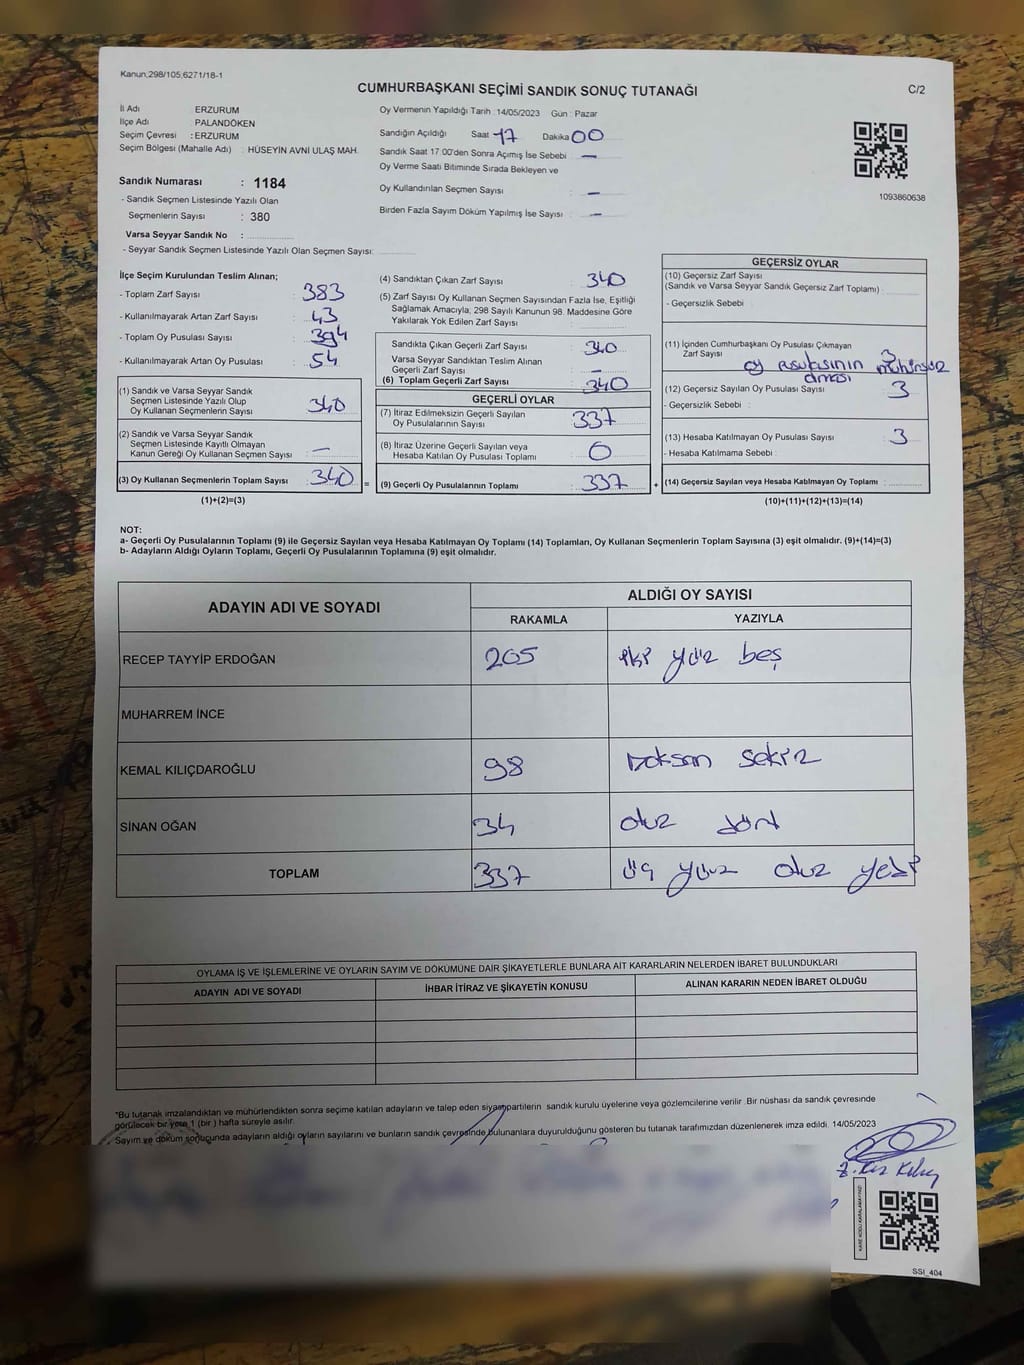 Kanun,298/105,6271/18-1
CUMHURBAŞKANI SEÇİMİ SANDIK SONUÇ TUTANAĞI
C/2
İl Adı : ERZURUM
İlçe Adı : PALANDÖKEN
Seçim Çevresi : ERZURUM
Seçim Bölgesi (Mahalle Adı) : HÜSEYİN AVNİ ULAŞ MAH.
Oy Vermenin Yapıldığı Tarih :14/05/2023 Gün : Pazar
Sandığın Açıldığı Saat 17 Dakika 00
Sandık Saat 17:00'den Sonra Açımış İse Sebebi : —
Oy Verme Saati Bitiminde Sırada Bekleyen ve
Oy Kullandırılan Seçmen Sayısı : —
Birden Fazla Sayım Döküm Yapılmış İse Sayısı : —
1093860638
Sandık Numarası : 1184
- Sandık Seçmen Listesinde Yazılı Olan
Seçmenlerin Sayısı : 380
Varsa Seyyar Sandık No :
- Seyyar Sandık Seçmen Listesinde Yazılı Olan Seçmen Sayısı:
İlçe Seçim Kurulundan Teslim Alınan;
- Toplam Zarf Sayısı : 383
- Kullanılmayarak Artan Zarf Sayısı : 43
- Toplam Oy Pusulası Sayısı : 394
- Kullanılmayarak Artan Oy Pusulası : 54
(1) Sandık ve Varsa Seyyar Sandık
Seçmen Listesinde Yazılı Olup
Oy Kullanan Seçmenlerin Sayısı : 340
(2) Sandık ve Varsa Seyyar Sandık
Seçmen Listesinde Kayıtlı Olmayan
Kanun Gereği Oy Kullanan Seçmen Sayısı : —
(3) Oy Kullanan Seçmenlerin Toplam Sayısı : 340 =
(1)+(2)=(3)
(4) Sandıktan Çıkan Zarf Sayısı : 340
(5) Zarf Sayısı Oy Kullanan Seçmen Sayısından Fazla İse, Eşitliği
Sağlamak Amacıyla, 298 Sayılı Kanunun 98. Maddesine Göre
Yakılarak Yok Edilen Zarf Sayısı :
Sandıkta Çıkan Geçerli Zarf Sayısı : 340
Varsa Seyyar Sandıktan Teslim Alınan
Geçerli Zarf Sayısı : —
(6) Toplam Geçerli Zarf Sayısı : 340
GEÇERLİ OYLAR
(7) İtiraz Edilmeksizin Geçerli Sayılan
Oy Pusulalarının Sayısı : 337
(8) İtiraz Üzerine Geçerli Sayılan veya
Hesaba Katılan Oy Pusulası Toplamı : 0
(9) Geçerli Oy Pusulalarının Toplamı : 337 +
GEÇERSİZ OYLAR
(10) Geçersiz Zarf Sayısı
(Sandık ve Varsa Seyyar Sandık Geçersiz Zarf Toplamı) :
- Geçersizlik Sebebi :
(11) İçinden Cumhurbaşkanı Oy Pusulası Çıkmayan
Zarf Sayısı : 3
oy pusulasının mühürsüz
olması
(12) Geçersiz Sayılan Oy Pusulası Sayısı : 3
- Geçersizlik Sebebi :
(13) Hesaba Katılmayan Oy Pusulası Sayısı : 3
- Hesaba Katılmama Sebebi :
(14) Geçersiz Sayılan veya Hesaba Katılmayan Oy Toplamı :
(10)+(11)+(12)+(13)=(14)
NOT:
a- Geçerli Oy Pusulalarının Toplamı (9) ile Geçersiz Sayılan veya Hesaba Katılmayan Oy Toplamı (14) Toplamları, Oy Kullanan Seçmenlerin Toplam Sayısına (3) eşit olmalıdır. (9)+(14)=(3)
b- Adayların Aldığı Oyların Toplamı, Geçerli Oy Pusulalarının Toplamına (9) eşit olmalıdır.
ADAYIN ADI VE SOYADI ALDIĞI OY SAYISI
RAKAMLA YAZIYLA
RECEP TAYYİP ERDOĞAN 205 iki yüz beş
MUHARREM İNCE
KEMAL KILIÇDAROĞLU 98 Doksan sekiz
SİNAN OĞAN 34 otuz dört
TOPLAM 337 üç yüz otuz yedi
OYLAMA İŞ VE İŞLEMLERİNE VE OYLARIN SAYIM VE DÖKÜMÜNE DAİR ŞİKAYETLERLE BUNLARA AİT KARARLARIN NELERDEN İBARET BULUNDUKLARI
ADAYIN ADI VE SOYADI İHBAR İTİRAZ VE ŞİKAYETİN KONUSU ALINAN KARARIN NEDEN İBARET OLDUĞU
*Bu tutanak imzalandıktan ve mühürlendikten sonra seçime katılan adayların ve talep eden siyasi partilerin sandık kurulu üyelerine veya gözlemcilerine verilir .Bir nüshası da sandık çevresinde
görülecek bir yere 1 (bir ) hafta süreyle asılır.
Sayım ve döküm sonucunda adayların aldığı oyların sayılarını ve bunların sandık çevresinde bulunanlara duyurulduğunu gösteren bu tutanak tarafımızdan düzenlenerek imza edildi. 14/05/2023
KARE KODU KARALAMAYINIZ!
SSI_404